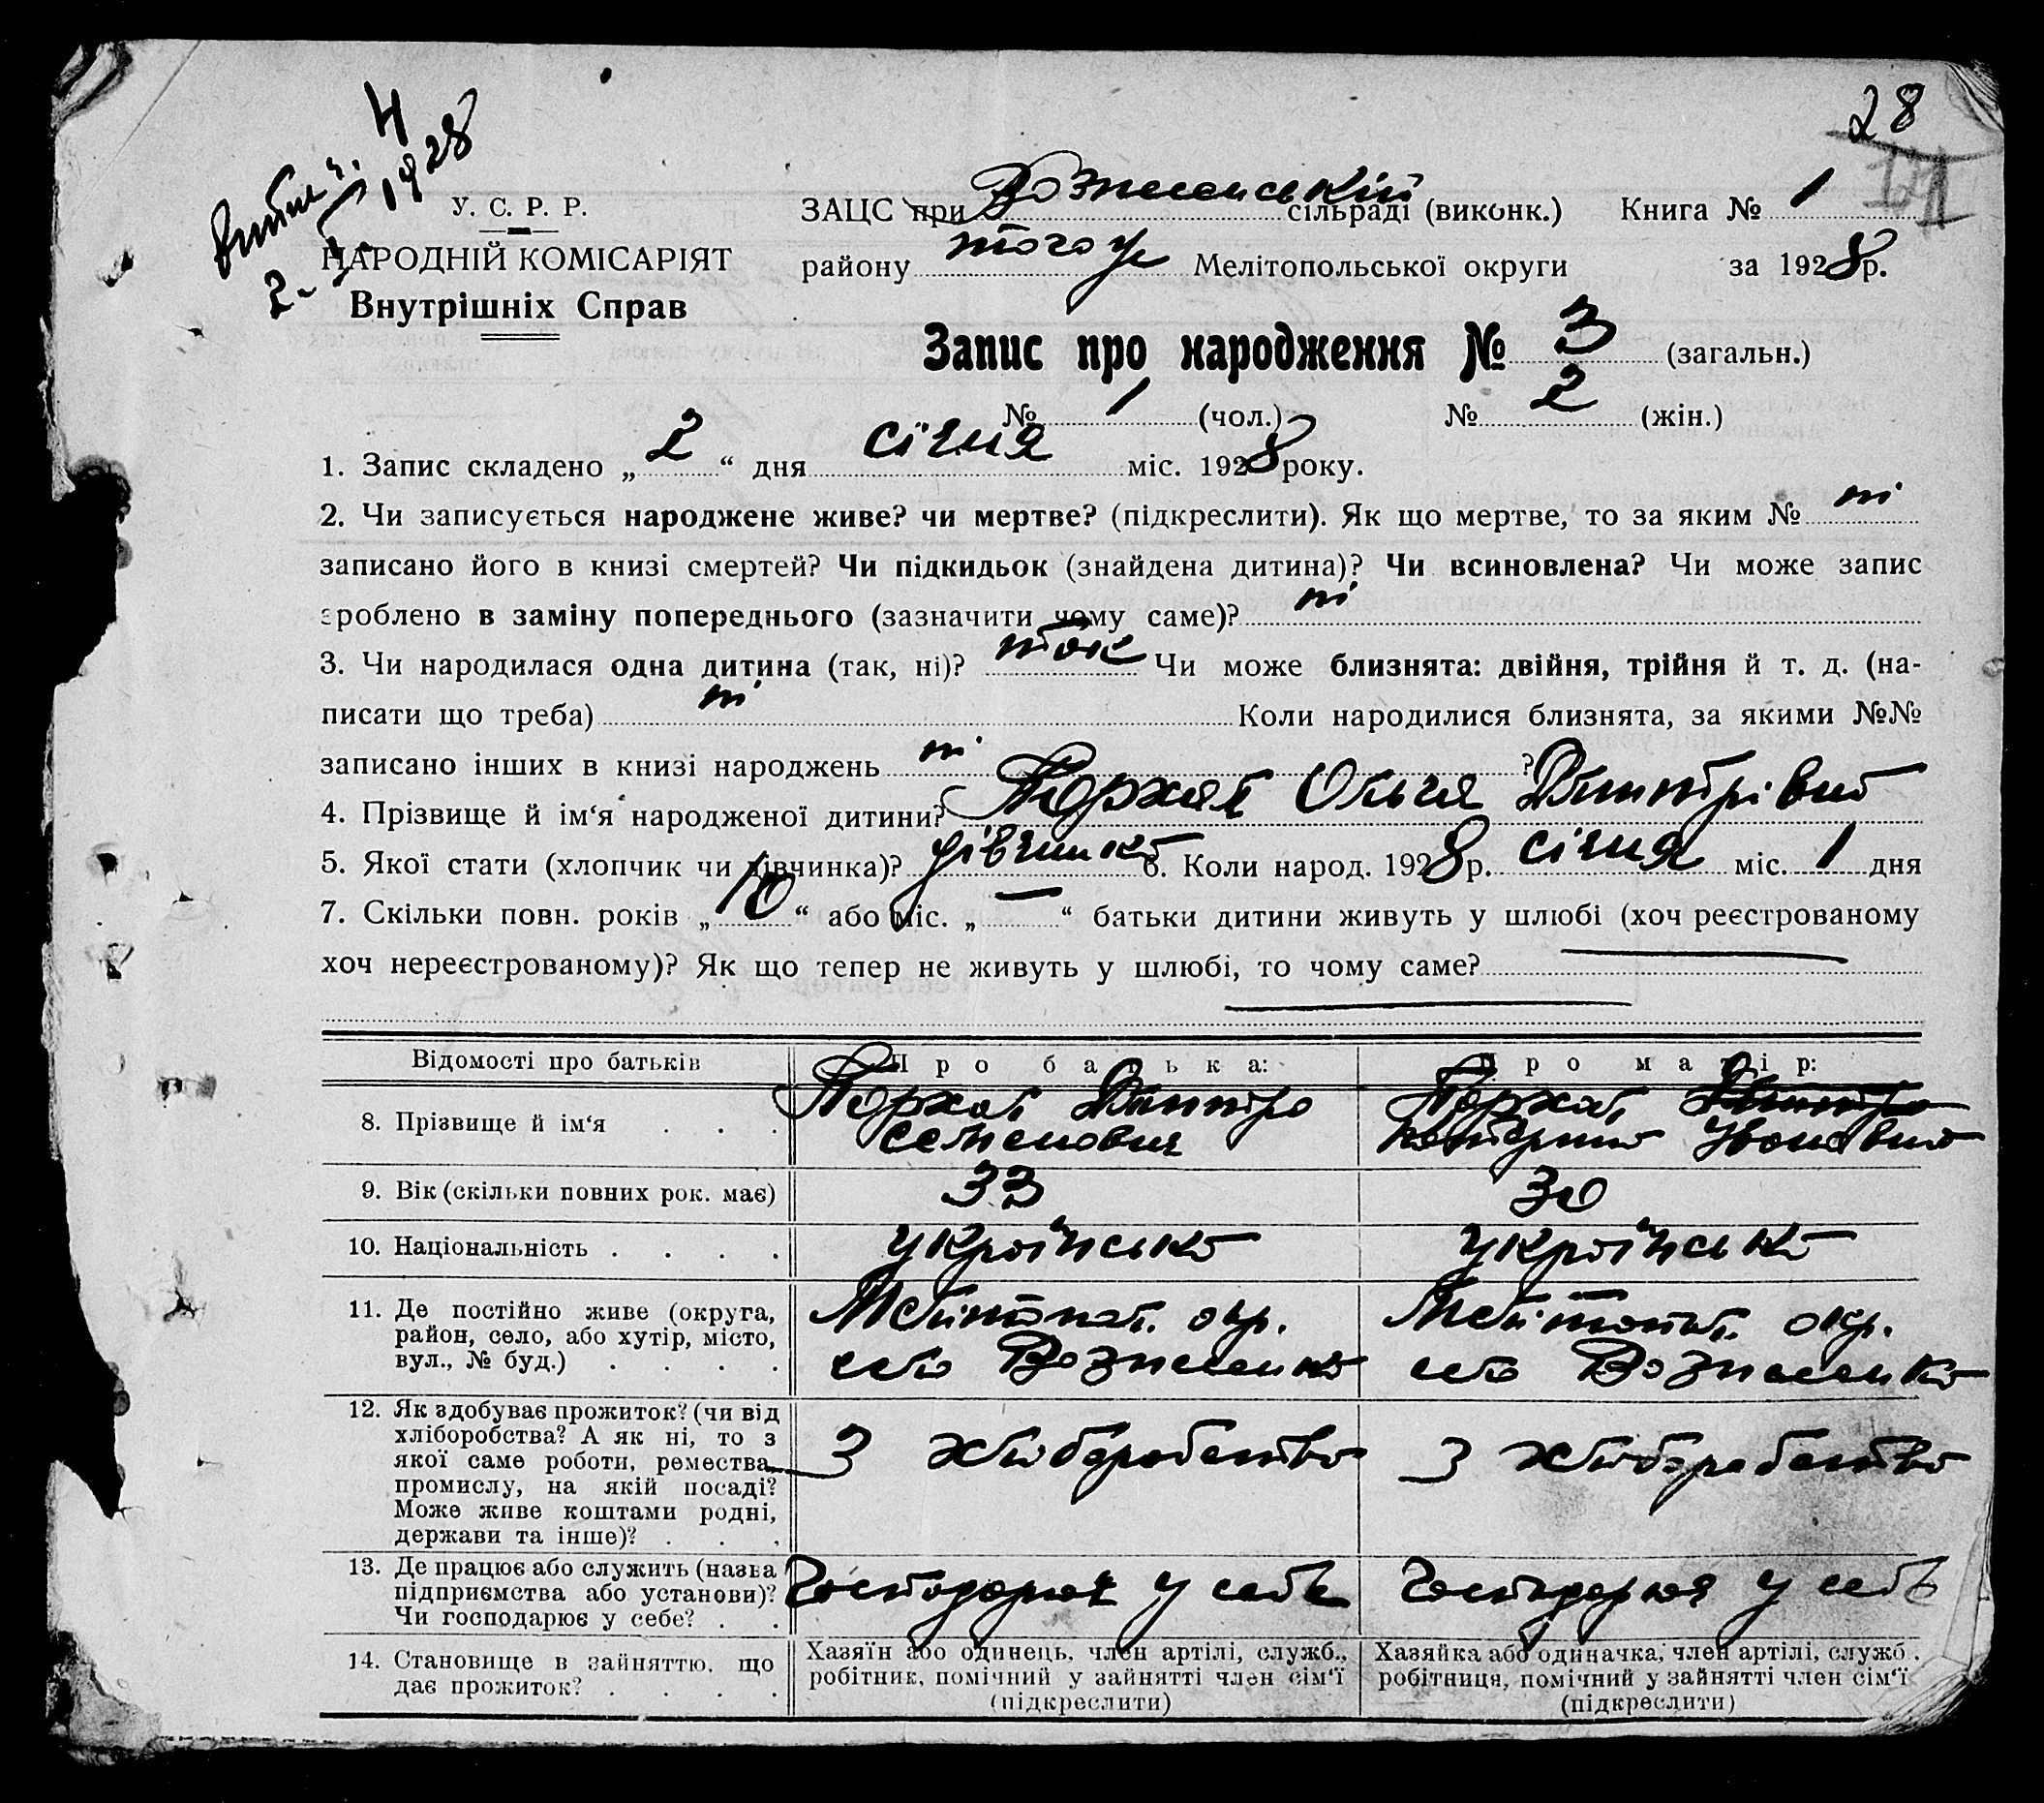 28
4
2. 1928
У. С. Р. Р.
НАРОДНІЙ КОМІСАРІЯТ
Внутрішніх Справ
ЗАЦС при Вознесенській сільраді (виконк.) Книга № 1
району того ж Мелітопольської округи за 1928 р.
Запис про народження № 3 (загальн.)
№ 1 (чол.) № 2 (жін.)
1. Запис складено „ 2 “ дня січня міс. 1928 року.
2. Чи записується народжене живе? чи мертве? (підкреслити). Як що мертве, то за яким № ні
записано його в книзі смертей? Чи підкидьок (знайдена дитина)? Чи всиновлена? Чи може запис
зроблено в заміну попереднього (зазначити чому саме)? ні
3. Чи народилася одна дитина (так, ні)? так Чи може близнята: двійня, трійня й т. д. (на-
писати що треба) ні Коли народилися близнята, за якими №№
записано інших в книзі народжень ні ?
4. Прізвище й ім‘я народженої дитини? Ольга Дмитрівна
5. Якої стати (хлопчик чи дівчинка)? дівчинка 6. Коли народ. 1928 р. січня міс. 1 дня
7. Скільки повн. років „ 10 “ або міс. „ — “ батьки дитини живуть у шлюбі (хоч реєстрованому
хоч нереєстрованому)? Як що тепер не живуть у шлюбі, то чому саме?
Відомості про батьків Про батька: Про матір:
8. Прізвище й ім‘я . . . Дмитро
Семенович
Катерина Івановна
9. Вік (скільки повних рок. має) 33 30
10. Національність . . . . українська українська
11. Де постійно живе (округа,
район, село, або хутір, місто,
вул., № буд.) . . . .
Мелітопол. окр.
село Вознесенка
Мелітопол. окр.
село Вознесенка
12. Як здобуває прожиток? (чи від
хліборобства? А як ні, то з
якої саме роботи, ремества,
промислу, на якій посаді?
Може живе коштами родні,
держави та інше)? . . .
З хліборобства
З хліборобства
13. Де працює або служить (назва
підприємства або установи)?
Чи господарює у себе? . .
Господарює у себе
Господарює у себе
14. Становище в зайняттю, що
дає прожиток? . . . .
Хазяїн або одинець, член артілі, служб.,
робітник, помічний у зайнятті член сім‘ї
(підкреслити)
Хазяйка або одиначка, член артілі, служб.,
робітниця, помічний у зайнятті член сім‘ї
(підкреслити)